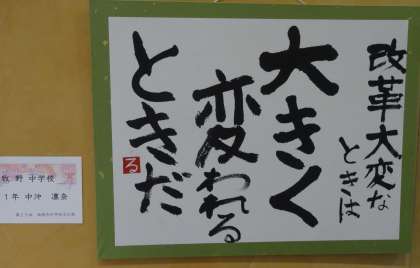 改革大変な
ときは
大きく
変われる
ときだ
る
牧野中学校
1年 中沖 凛奈